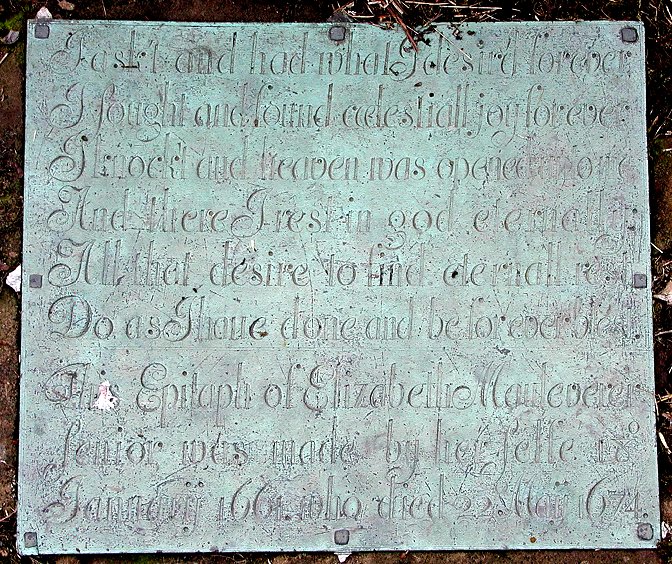 I ask't and had what I desir'd forever
I sought and found cœlestiall joy forever
I knock't and heaven was opened to me
And there I rest in god eternally
All that desire to find eternall rest
Do as I haue done and be forever blest
This Epitaph of Elizabeth Mauleverer
senior was made by her selfe 18º
Januarÿ 1661. who died 22 Maÿ 1674